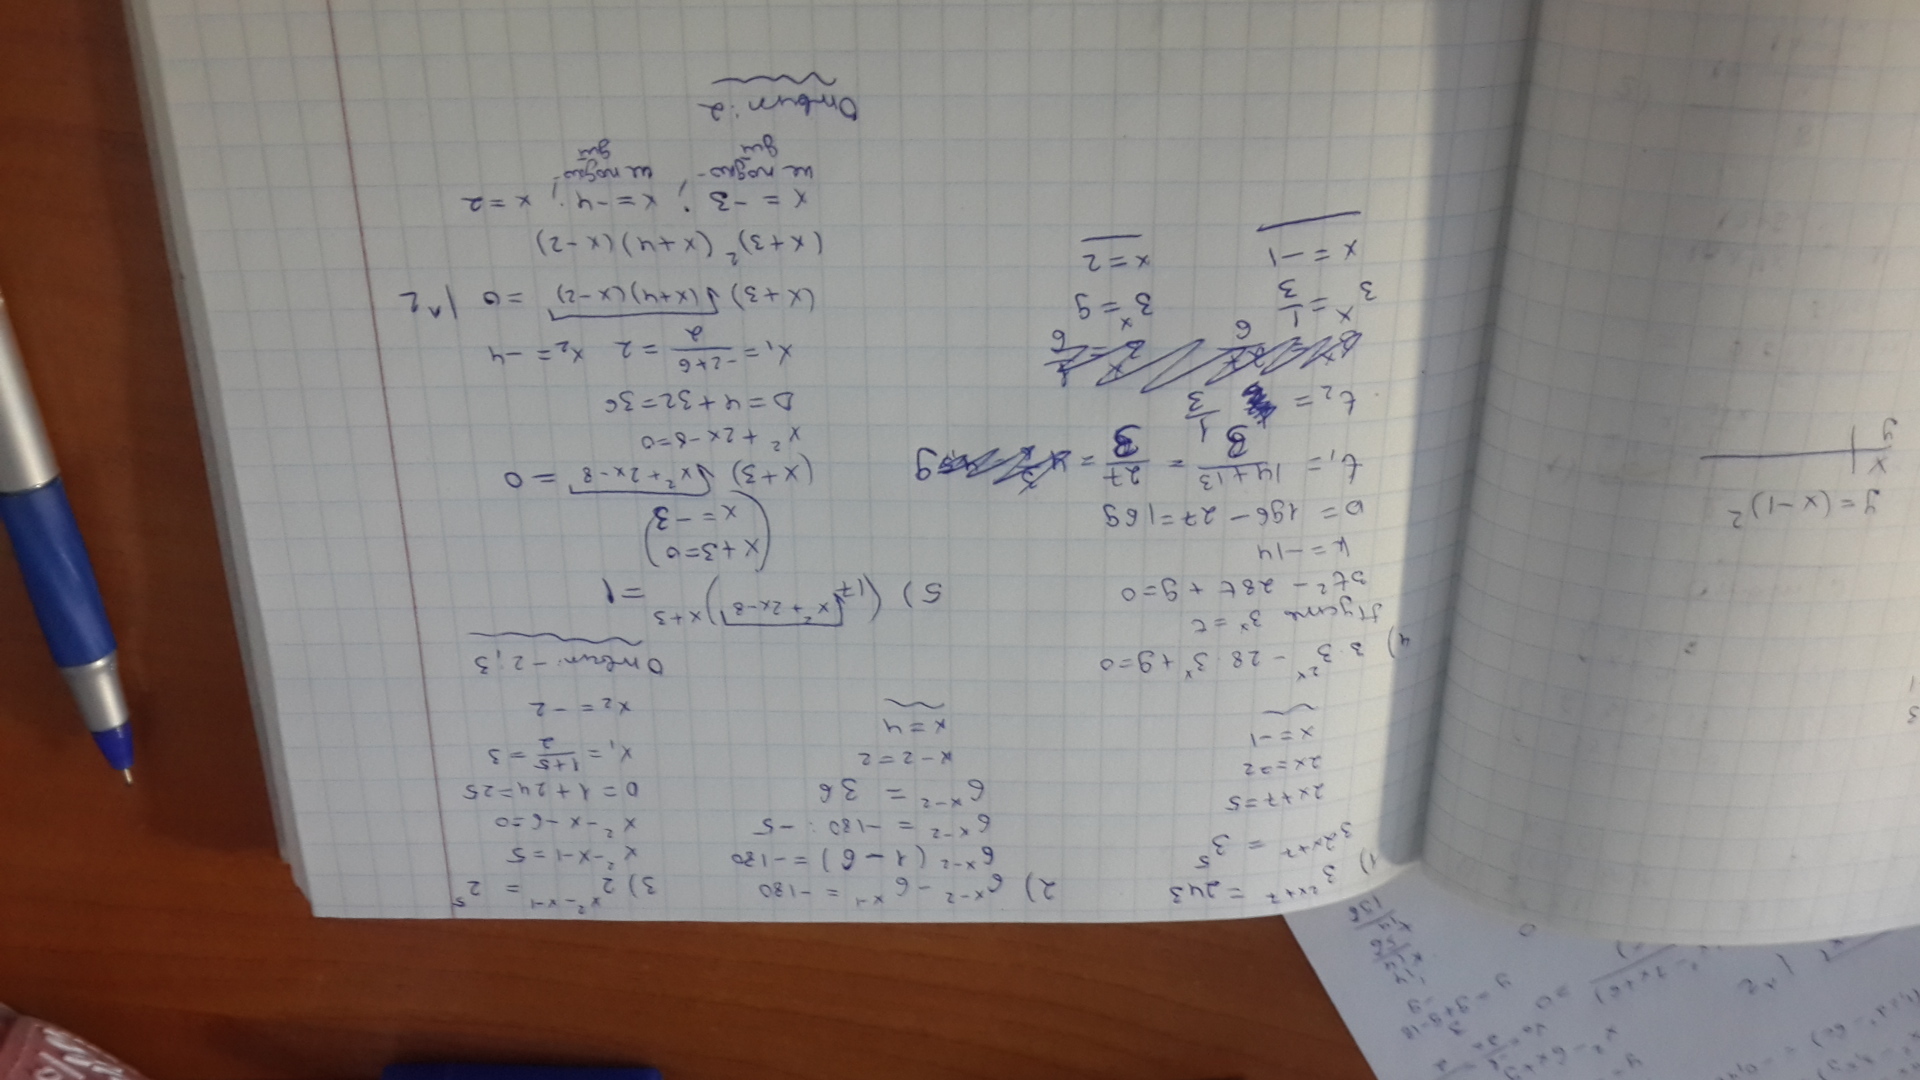 1) 3^{2x+7} = 243
3^{2x+7} = 3^5
2x+7=5
2x=-2
x=-1
2) 6^{x-2} - 6^{x-1} = -180
6^{x-2} (1-6) = -180
6^{x-2} = -180 : -5
6^{x-2} = 36
x-2=2
x=4
3) 2^{x^2-x-1} = 2^5
x^2-x-1=5
x^2-x-6=0
D=1+24=25
x_1 = \frac{1+5}{2} = 3
x_2 = -2
Ответ: -2; 3
4) 3·3^{2x} - 28·3^x + 9=0
Пусть 3^x = t
3t^2 - 28t + 9=0
k=-14
D= 196 - 27 = 169
t_1 = \frac{14+13}{3} = \frac{27}{3} = 9
t_2 = \frac{1}{3}
3^x = \frac{1}{3} 3^x = 9
x = -1 x=2
5) (17^{\sqrt{x^2+2x-8}})^{x+3} = 1
(x+3=0
x=-3)
(x+3)\sqrt{x^2+2x-8} = 0
x^2+2x-8=0
D=4+32=36
x_1 = \frac{-2+6}{2} = 2 x_2 = -4
(x+3)\sqrt{(x+4)(x-2)} = 0 |^2
(x+3)^2 (x+4)(x-2)
x = -3 ; x=-4 ; x=2
не подхо- не подхо-
дит дит
Ответ: 2
y=(x-1)^2
x
y